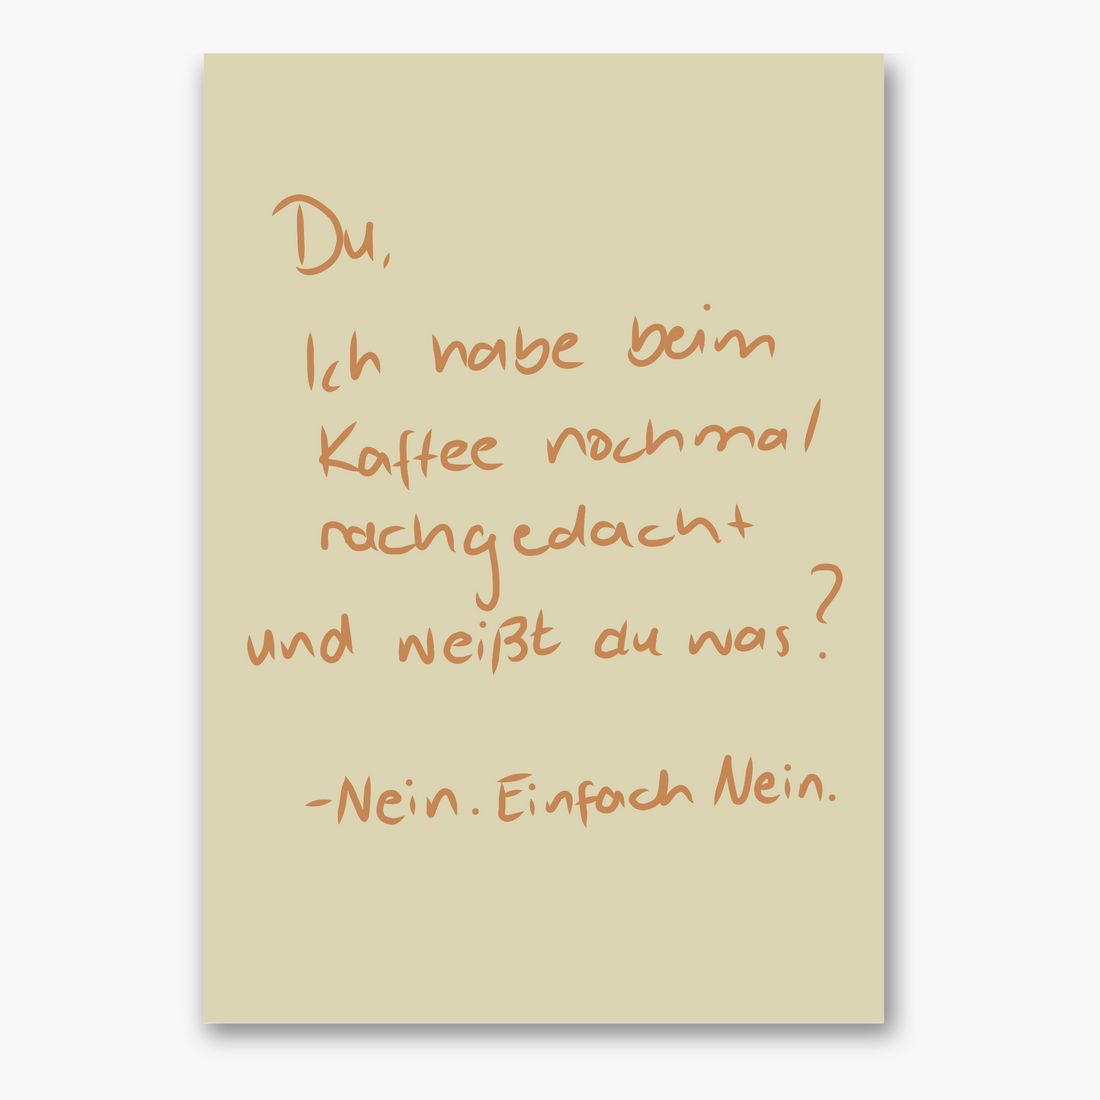 Du,
Ich habe beim
Kaffee nochmal
nachgedacht
und weißt du was?
-Nein. Einfach Nein.